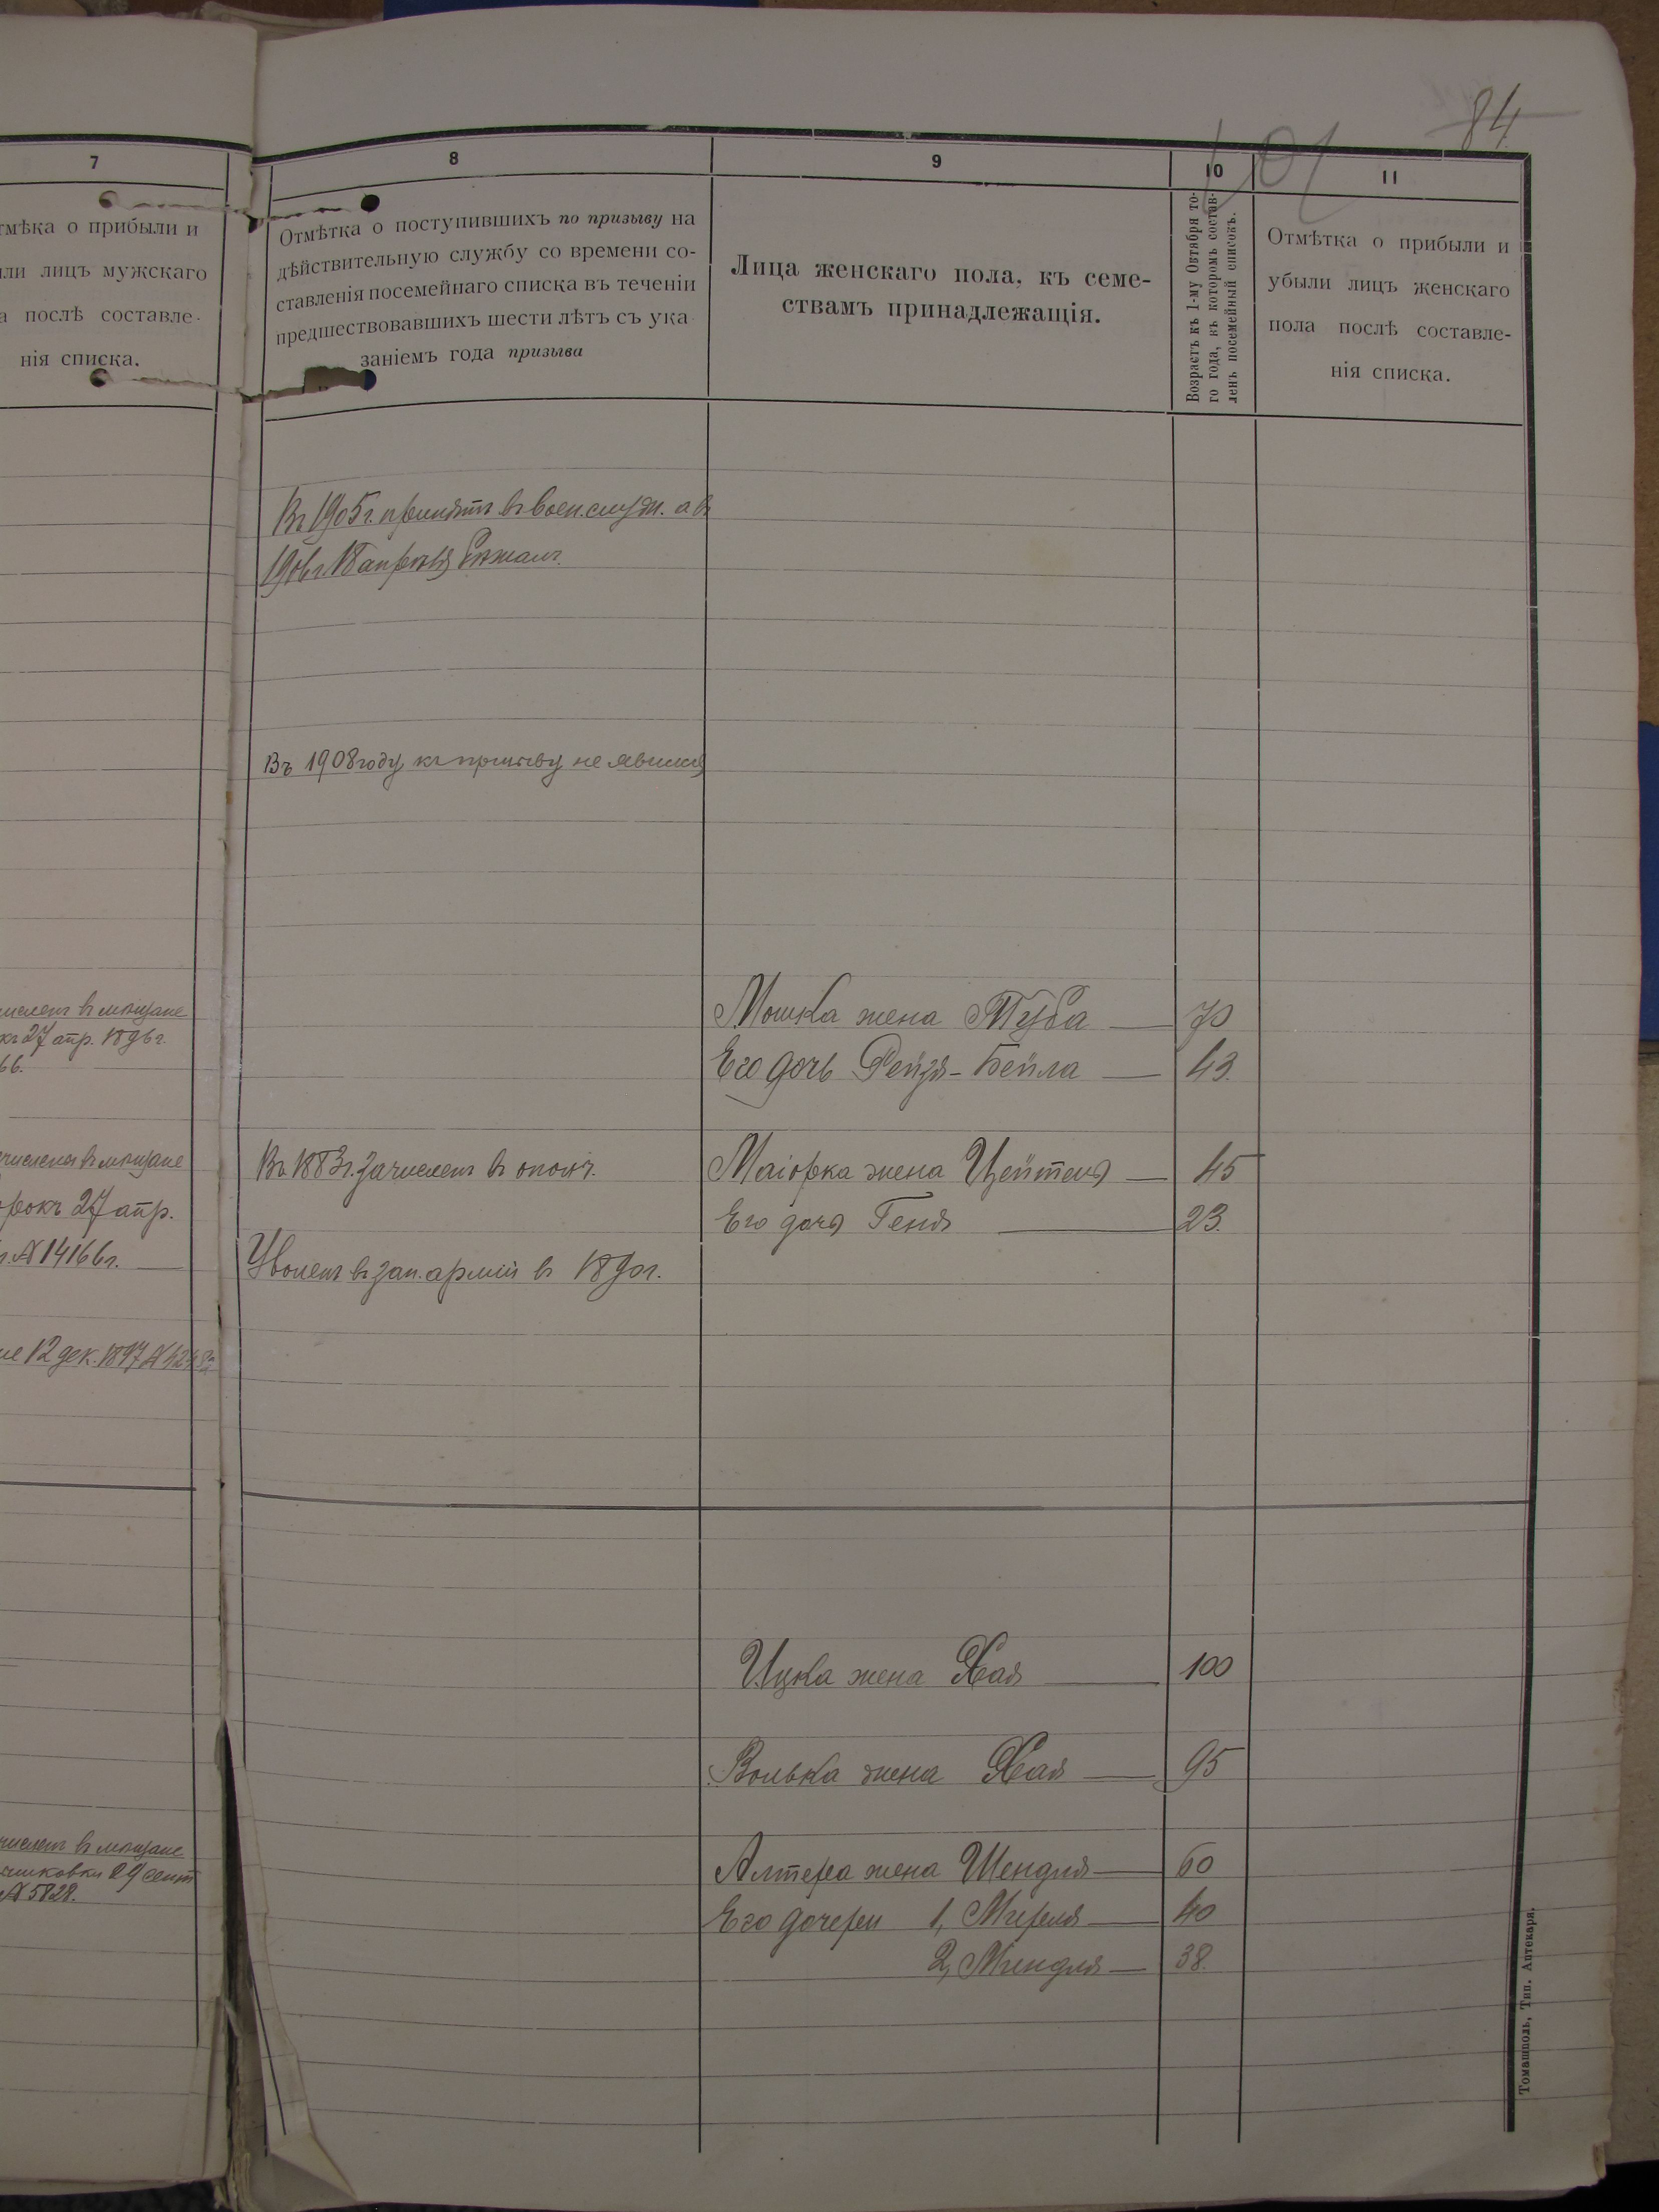 84
101
7
8
9
10
11
тмѣка о прибыли и
или лицъ мужскаго
а послѣ составле-
нія списка.
Отмѣтка о поступившихъ по призыву на
дѣйствительную службу со времени со-
ставленія посемейнаго списка въ теченіи
предшествовавшихъ шести лѣтъ съ ука
заніемъ года призыва
Лица женскаго пола, къ семе-
ствамъ принадлежащія.
Возрастъ къ 1-му Октября то-
го года, къ которомъ состав-
ленъ посемейный списокъ.
Отмѣтка о прибыли и
убыли лицъ женскаго
пола послѣ составле-
нія списка.
Въ 1905г. принятъ въ воен.служ. а въ
1906г. 18 апрѣля бѣжалъ.
Въ 1908 году къ призыву не явился
численъ въ мѣщане
27 апр. 1896г.
66.
Мошка жена Туба — 70
Его дочь Рейзя-Бейла — 43.
численъ въ мѣщане
27 апр.
№14166г. —
Въ 1883г. зачисленъ въ ополч.
Маіорка жена Цейтля — 45
Его дочь Геня — 23.
Уволенъ въ зап. арміи въ 1890г.
12 дек. 1897
Ицка жена Хая — 100
Волька жена Хая — 95
численъ въ мѣщане
29 сент
№5828.
Алтера жена Шендля — 60
Его дочери 1, Миреля — 40
2, Миндля — 38.
Томашполь, Тип. Аптекаря.